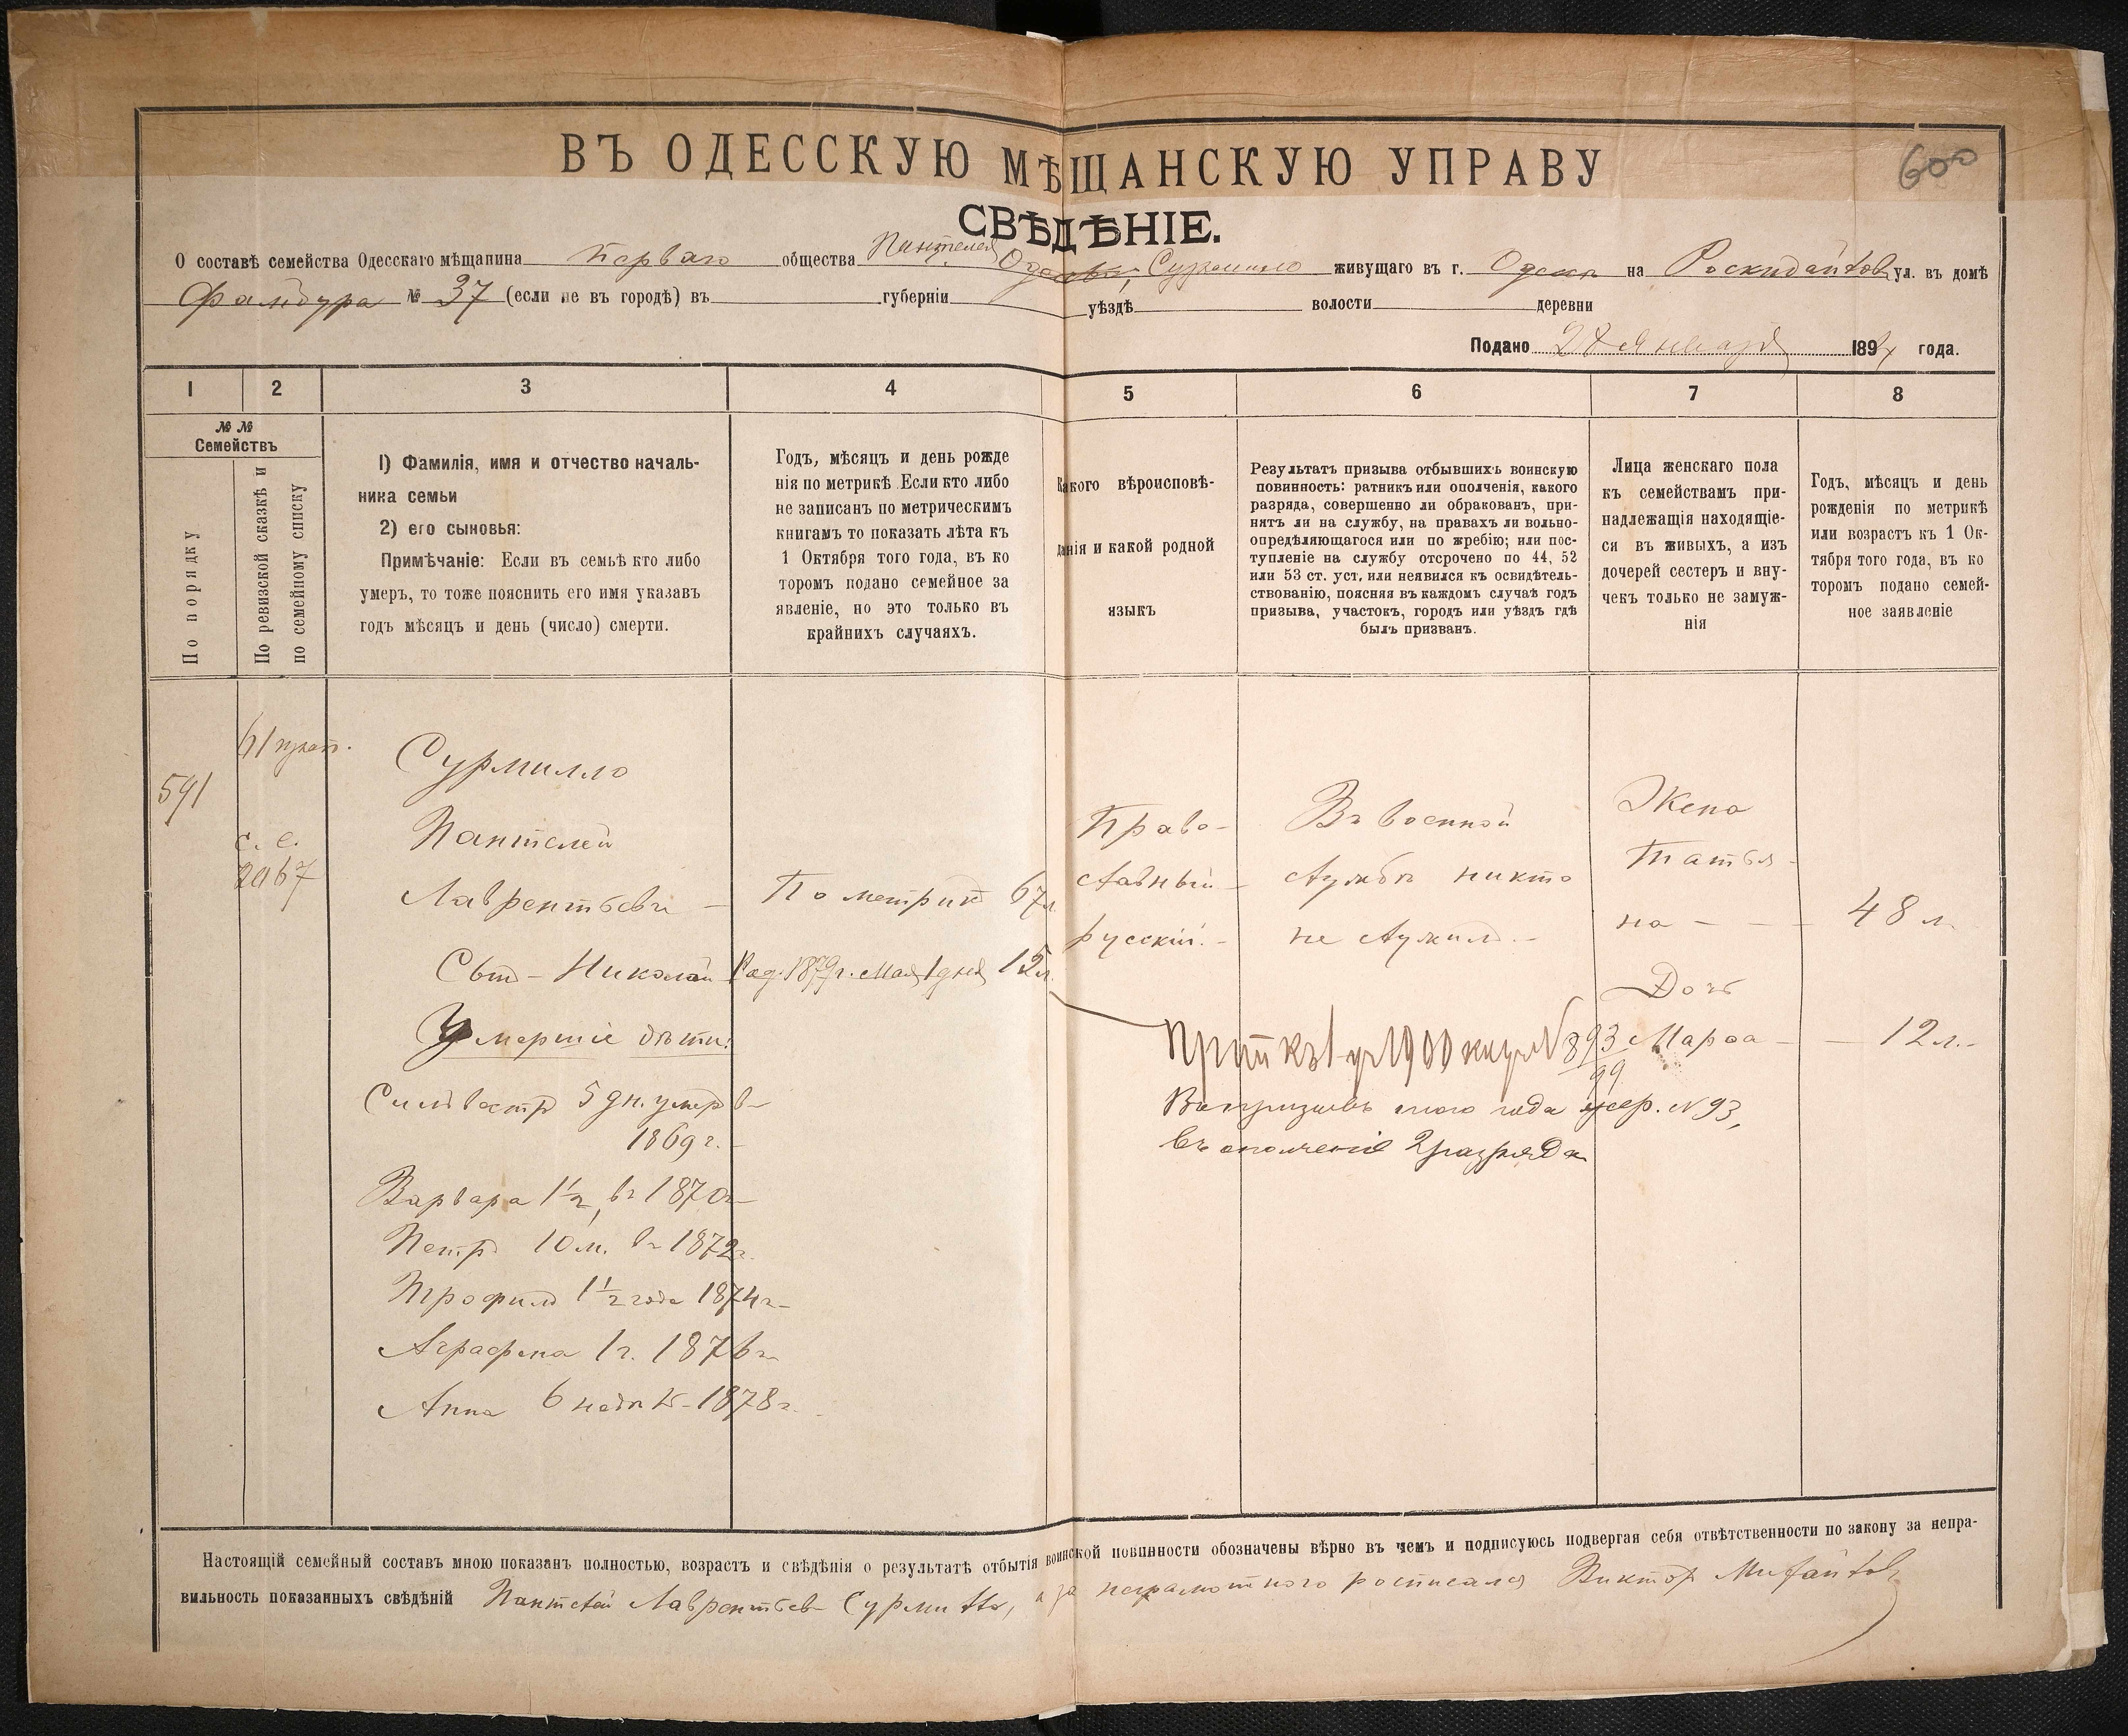 600
ВЪ ОДЕССКУЮ МѢЩАНСКУЮ УПРАВУ
СВѢДѢНІЕ.
О составѣ семейства Одесскаго мѣщанина перваго общества Пантелея Сурмилло живущаго въ г. Одессѣ на Роскидайтов ул. въ домѣ
№ 37 (если не въ городѣ) въ губерніи уѣздѣ волости деревни
Подано 28 Января 1894 года.
1 2 3 4 5 6 7 8
№№ Семействъ
По порядку
По ревизской сказкѣ и по семейному списку
1) Фамилія, имя и отчество началь-
ника семьи
2) его сыновья:
Примѣчаніе: Если въ семьѣ кто либо
умеръ, то тоже пояснить его имя указавъ
годъ мѣсяцъ и день (число) смерти.
Годъ, мѣсяцъ и день рожде
нія по метрикѣ Если кто либо
не записанъ по метрическимъ
книгамъ то показать лѣта къ
1 Октября того года, въ ко
торомъ подано семейное за
явленіе, но это только въ
крайнихъ случаяхъ.
Какого вѣроисповѣ-
данія и какой родной
языкъ
Результатъ призыва отбывшихъ воинскую
повинность: ратникъ или ополченія, какого
разряда, совершенно ли обракованъ, при-
нятъ ли на службу, на правахъ ли вольно-
опредѣляющагося или по жребію; или пос-
тупленіе на службу отсрочено по 44, 52
или 53 ст. уст. или неявился къ освидѣтель-
ствованію, поясняя въ каждомъ случаѣ годъ
призыва, участокъ, городъ или уѣздъ гдѣ
былъ призванъ.
Лица женскаго пола
къ семействамъ при-
надлежащія находящіе-
ся въ живыхъ, а изъ
дочерей сестеръ и вну-
чекъ только не замуж-
нія
Годъ, мѣсяцъ и день
рожденія по метрикѣ
или возрастъ къ 1 Ок-
тября того года, въ ко
торомъ подано семей-
ное заявленіе
591
с. с.
2067
Сурмилло
Пантелей
Лаврентьевъ – По метрикѣ 67 л.
Сынъ – Николай Род. 1879 г. Мая 1 дня 15 л.
Умершіе дѣти:
Сильвестръ 5 дн. умеръ в–
1869 г. –
Варвара 1½, въ 1870 г –
Петръ 10 м. въ 1872 г.
Трофимъ 1½ года 1874 г –
Аграфена 1 г. 1876 г
Анна 6 недѣль – 1878 г.
Право–
славный –
русскій. –
Въ военной
службѣ никто
не служилъ. –
Жена
Татья–
на – – – 48 л
Дочь
Марфа – – 12 л. –
893
99
года жер. № 93,
въ ополченіе 2 разряда
Настоящій семейный составъ мною показанъ полностью, возрастъ и свѣдѣнія о результатѣ отбытія воинской повинности обозначены вѣрно въ чемъ и подписуюсь подвергая себя отвѣтственности по закону за непра-
вильность показанныхъ свѣдѣній Пантелей Лаврентьевъ Сурмилло, а за неграмотного росписался Виктор